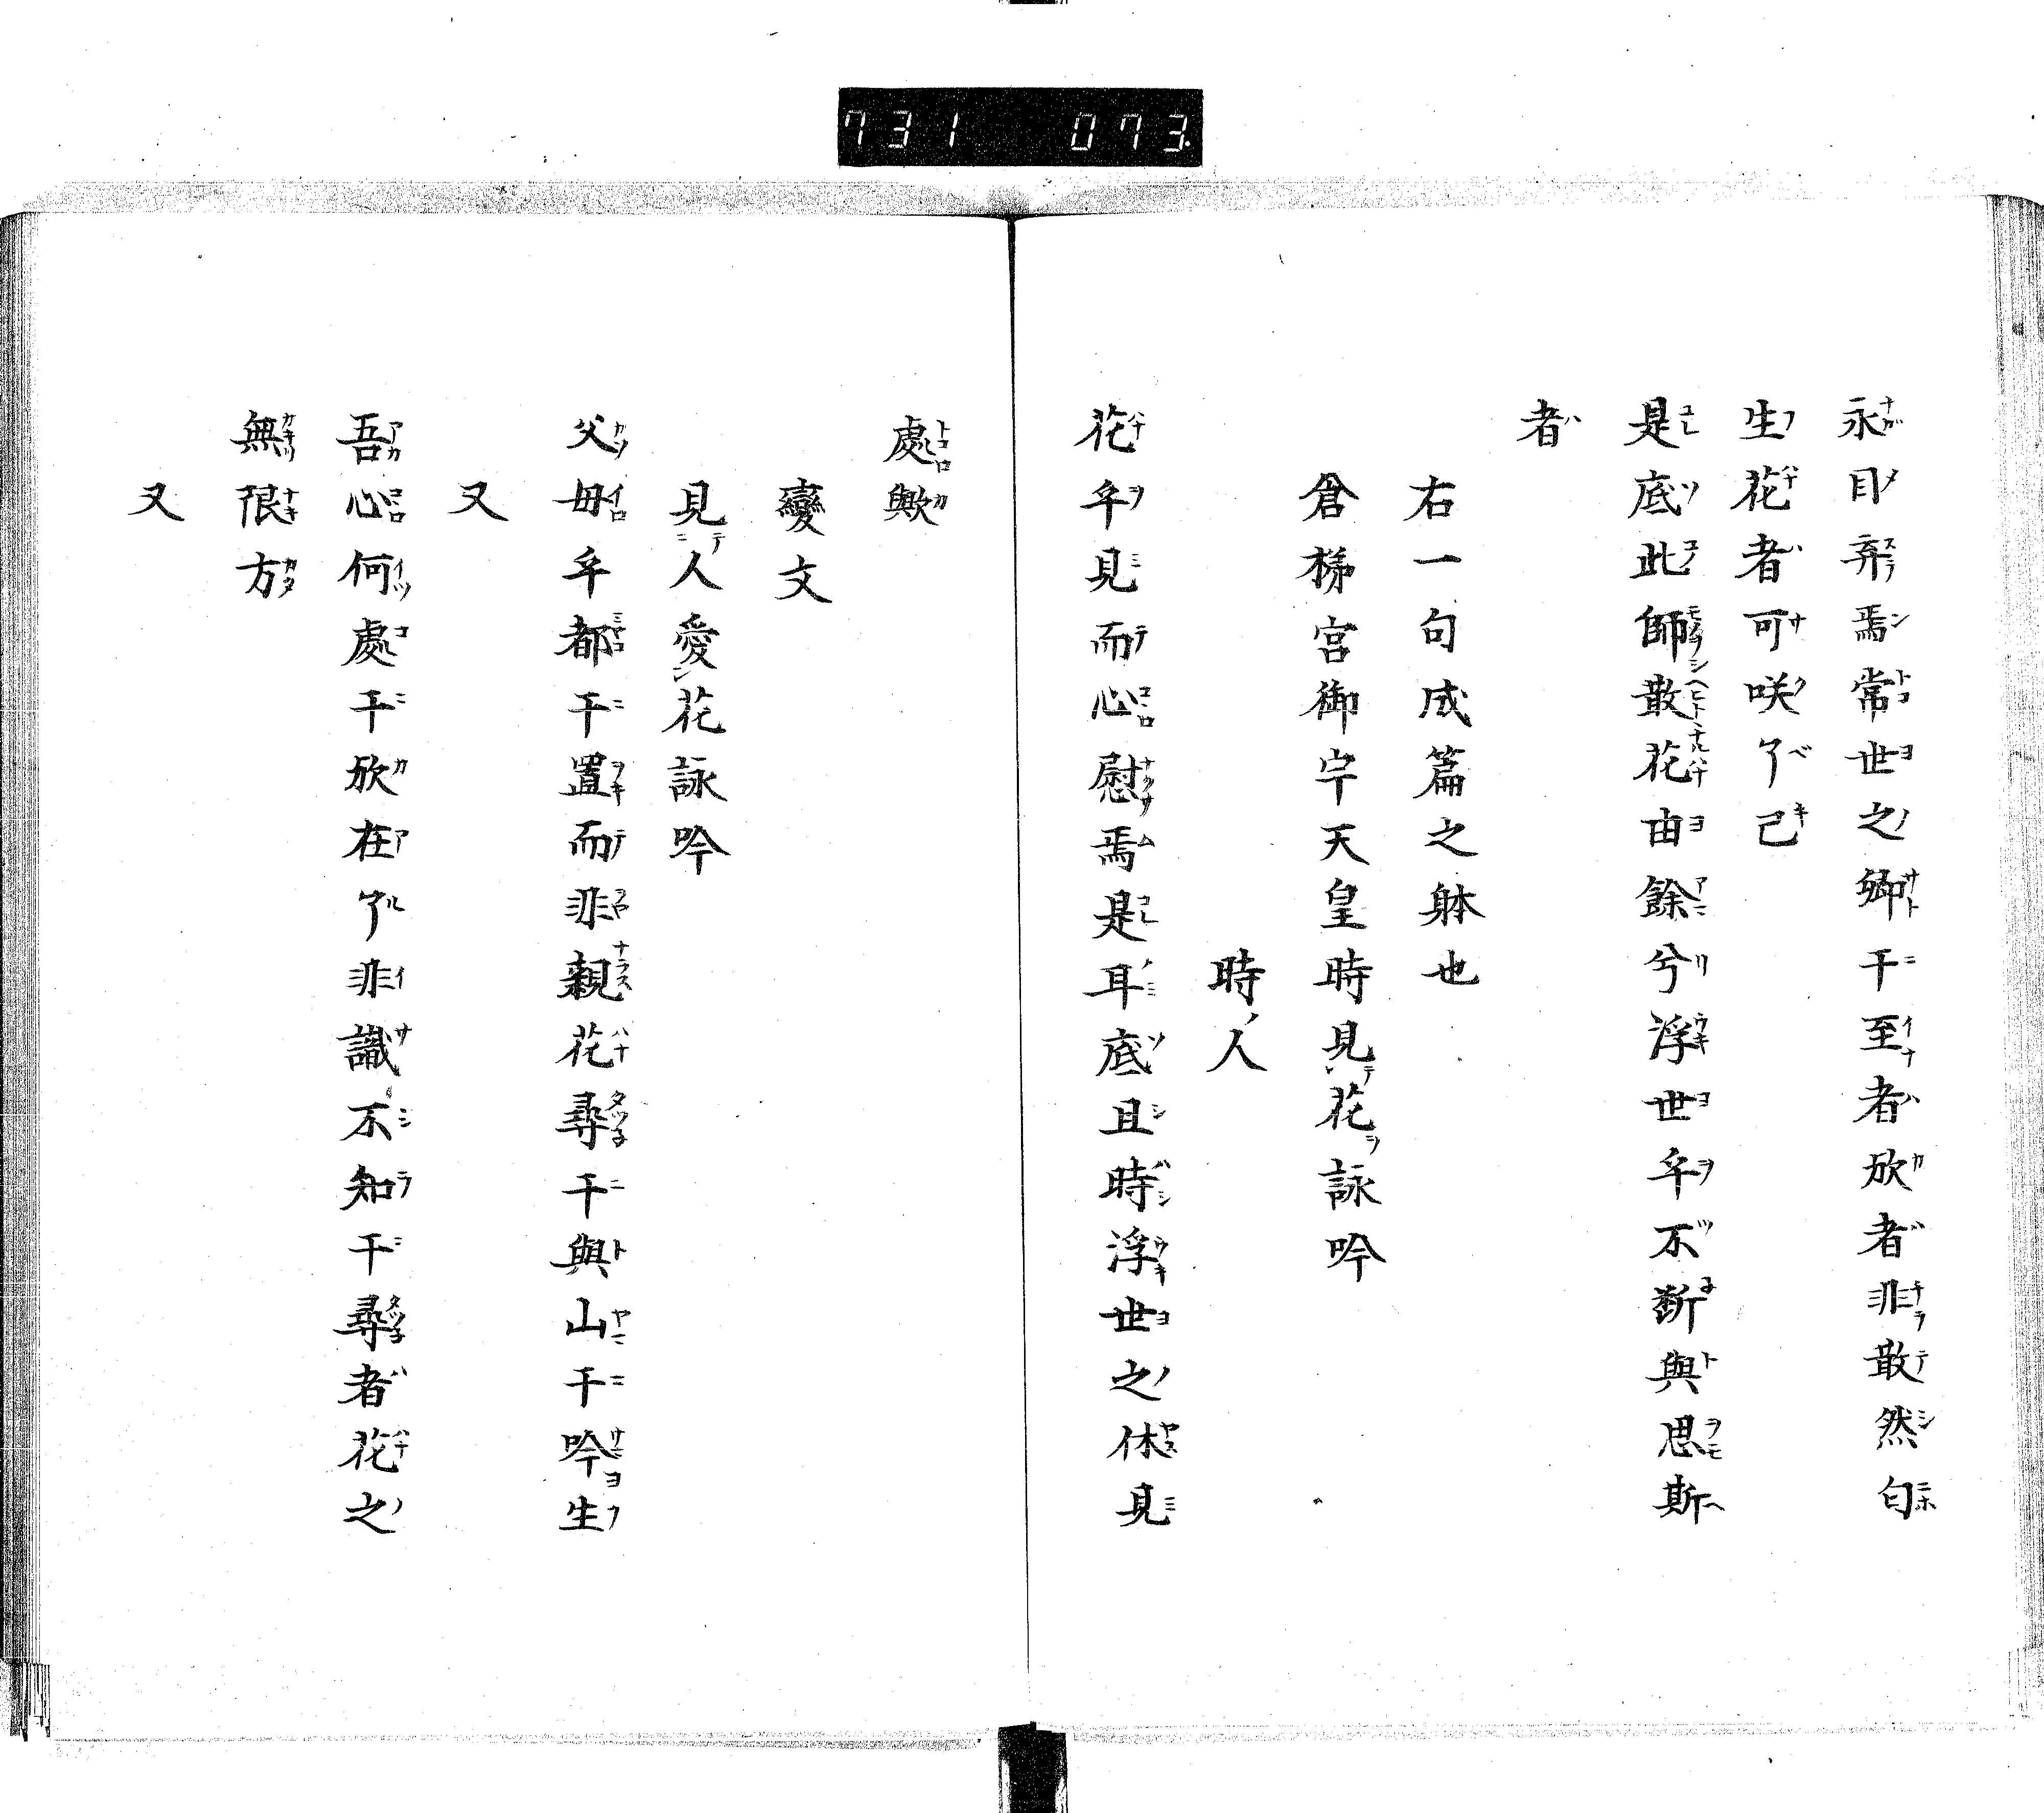 731 073
永目弃焉常世之卿干至者欣者非散然匂
生花者可咲了己
是底此師散花由餘兮浮世乎不断與思斯
者
右一句成篇之躰也
倉梯宮御宇天皇時見花詠吟
時人
花乎見而心慰焉是耳底且時浮世之休見
處歟
變文
見人愛花詠吟
父母乎都干置而非親花尋干與山干吟生
又
吾心何處干欣在了非識不知干尋者花之
無限方
又